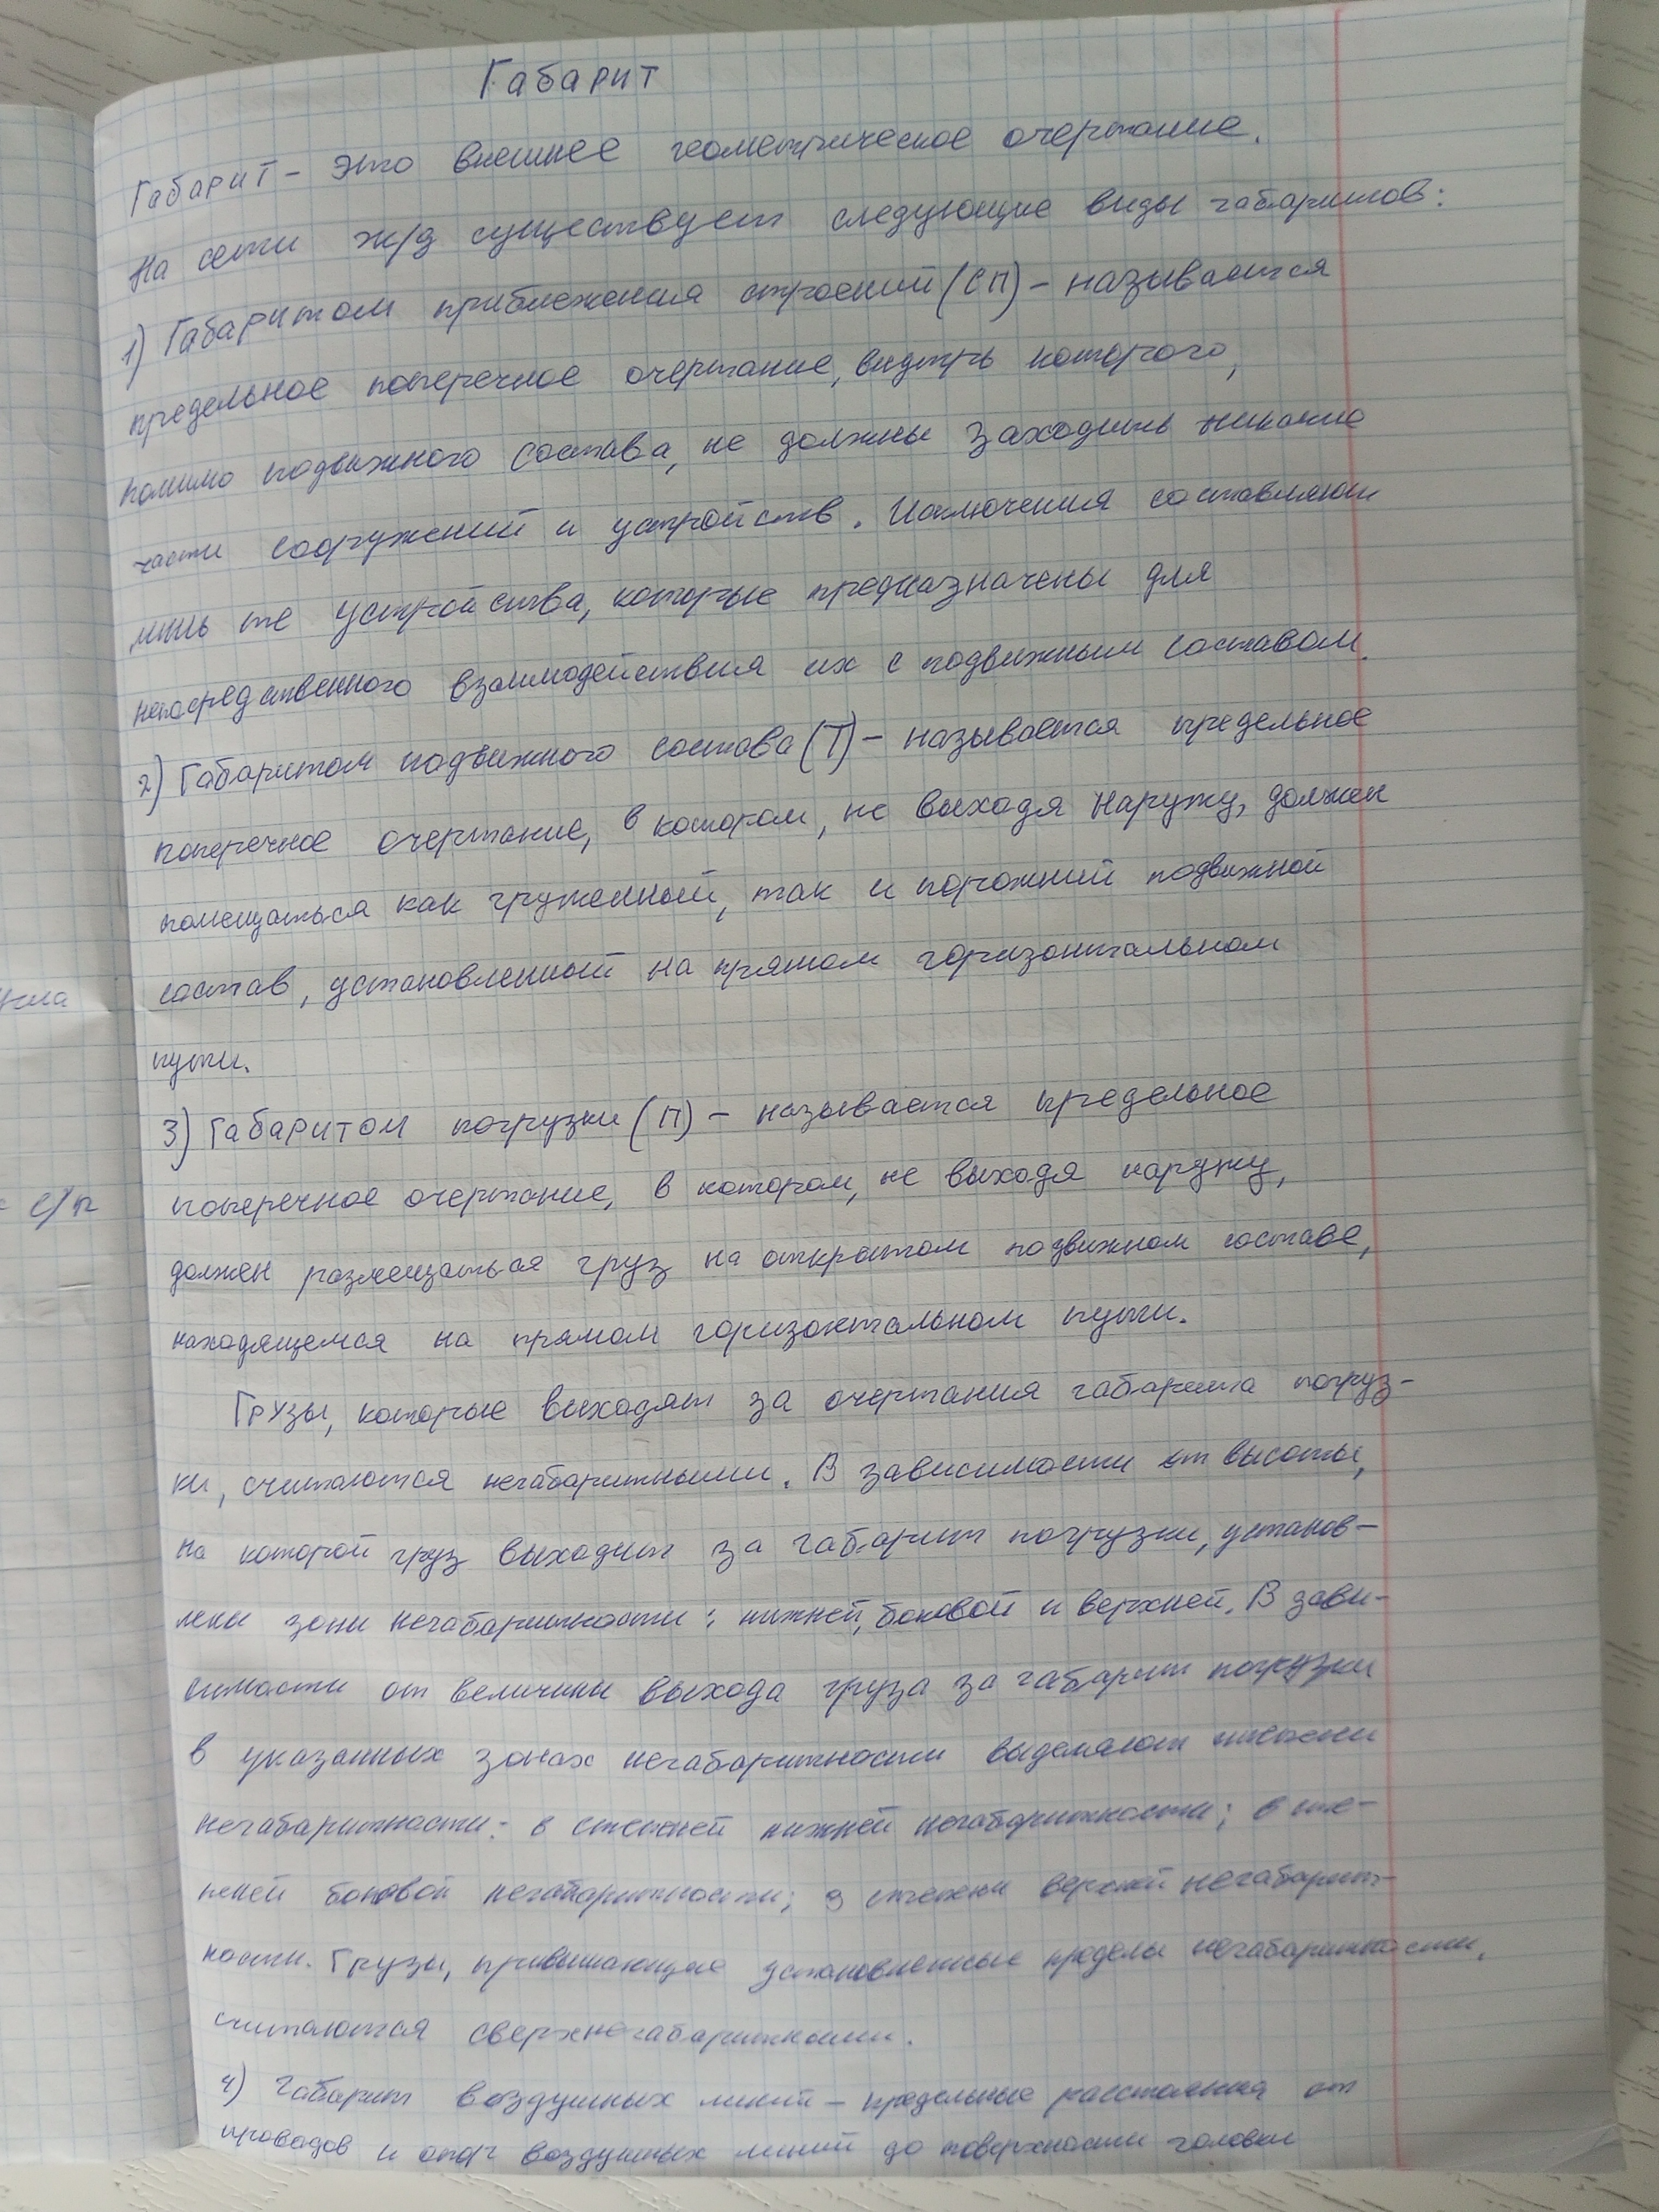 Габарит
Габарит – это внешнее геометрическое очертание.
На сети ж/д существует следующие виды габаритов:
1) Габаритом приближения строений (СП) – называется
предельное поперечное очертание, внутрь которого,
помимо подвижного состава, не должны заходить никакие
части сооружений и устройств. Исключения составляют
лишь те устройства, которые предназначены для
непосредственного взаимодействия их с подвижным составом.
2) Габаритом подвижного состава (Т) – называется предельное
поперечное очертание, в котором, не выходя наружу, должен
помещаться как груженный, так и порожний подвижной
состав, установленный на прямом горизонтальном
пути.
3) Габаритом погрузки (П) – называется предельное
поперечное очертание, в котором, не выходя наружу,
должен размещаться груз на открытом подвижном составе,
находящемся на прямом горизонтальном пути.
Грузы, которые выходят за очертания габарита погруз-
ки, считаются негабаритными. В зависимости от высоты,
на которой груз выходит за габарит погрузки, установ-
лены зоны негабаритности: нижней, боковой и верхней. В зави-
симости от величины выхода груза за габарит погрузки
в указанных зонах негабаритности выделяют степени
негабаритности: 6 степеней нижней негабаритности; 6 сте-
пеней боковой негабаритности; 3 степени верхней негабарит-
ности. Грузы, превышающие установленные пределы негабаритности,
считаются сверхнегабаритными.
4) Габарит воздушных линий – предельные расстояния от
проводов и опор воздушных линий до поверхности головки
с/п